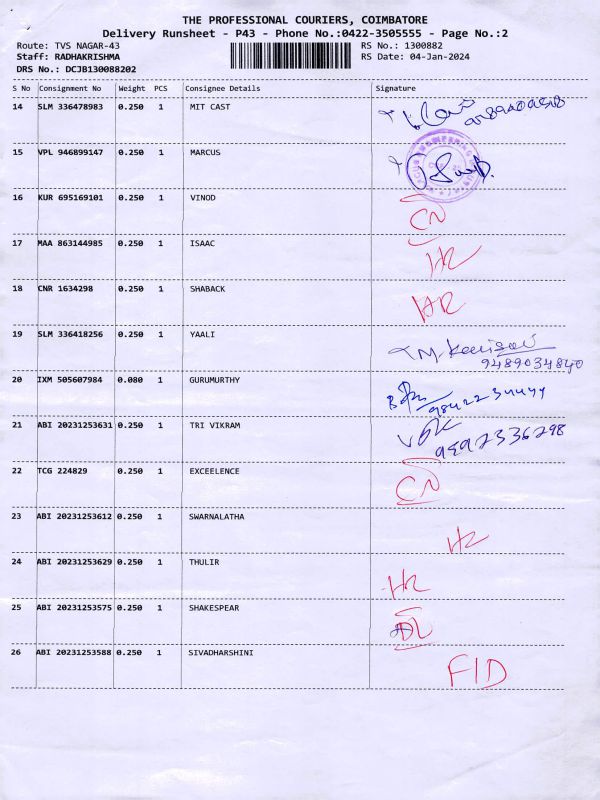 THE PROFESSIONAL COURIERS, COIMBATORE
Delivery Runsheet - P43 - Phone No.:0422-3505555 - Page No.:2
Route: TVS NAGAR-43 RS No.: 1300882
Staff: RADHAKRISHMA RS Date: 04-Jan-2024
DRS No.: DCJB130088202
S No Consignment No Weight PCS Consignee Details Signature
14 SLM 336478983 0.250 1 MIT CAST
15 VPL 946899147 0.250 1 MARCUS
16 KUR 695169101 0.250 1 VINOD CN
17 MAA 863144985 0.250 1 ISAAC HR
18 CNR 1634298 0.250 1 SHABACK HR
19 SLM 336418256 0.250 1 YAALI
9489034840
20 IXM 505607984 0.080 1 GURUMURTHY
9842234444
21 ABI 20231253631 0.250 1 TRI VIKRAM
22 TCG 224829 0.250 1 EXCEELENCE CN
23 ABI 20231253612 0.250 1 SWARNALATHA HR
24 ABI 20231253629 0.250 1 THULIR HR
25 ABI 20231253575 0.250 1 SHAKESPEAR DL
26 ABI 20231253588 0.250 1 SIVADHARSHINI FID